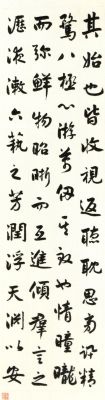 其始也皆收視返聽耽思旁訊精
騖八極心游萬仞其致也情曈曨
而弥鮮物昭晰而互進傾群言之
瀝液漱六藝之芳潤浮天淵以安